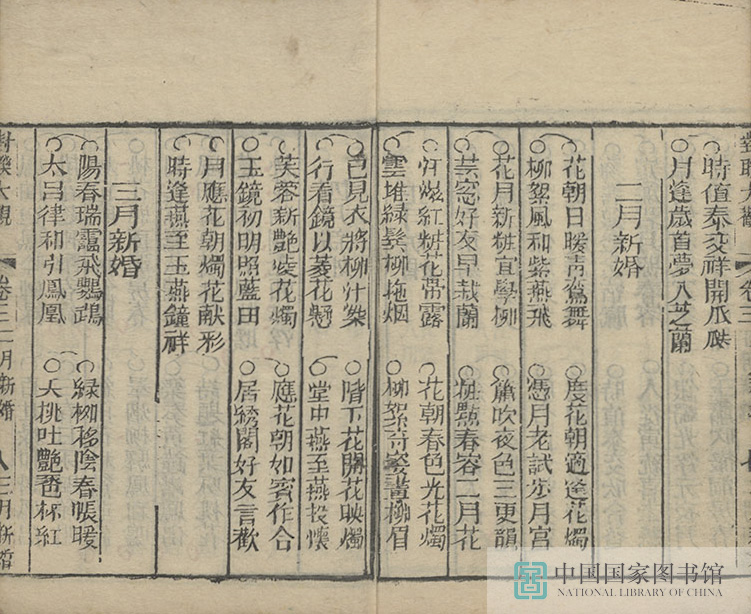 時值泰交祥開瓜瓞
月逢歲首夢入芝蘭
二月新婚
花朝日暖青鸞舞
度花朝適逢花燭
柳絮風和紫燕飛
憑月老試步月宮
花月新粧宜學柳
簫吹夜色三更韻
芸窓好友早栽蘭
粧點春容二月花
汗凝紅粧花帶露
花朝春色光花燭
雲堆綠鬓柳拖烟
柳絮奇姿畫柳眉
已見衣將柳汁染
階下花開花映燭
行看鏡以菱花懸
堂中燕至燕投懷
芙蓉新艷裝花燭
應花朝如賓作合
玉鏡初明照藍田
居綉閣好友言歡
月應花朝燭花献彩
時逢燕至玉燕鐘祥
三月新婚
陽春瑞靄飛鸚鵡
綠柳移陰春帳暖
太呂律和引鳳凰
夭桃吐艷卺杯紅
對聯大觀
卷三二月新婚
八三月新婚
中国国家图书馆
NATIONAL LIBRARY OF CHINA